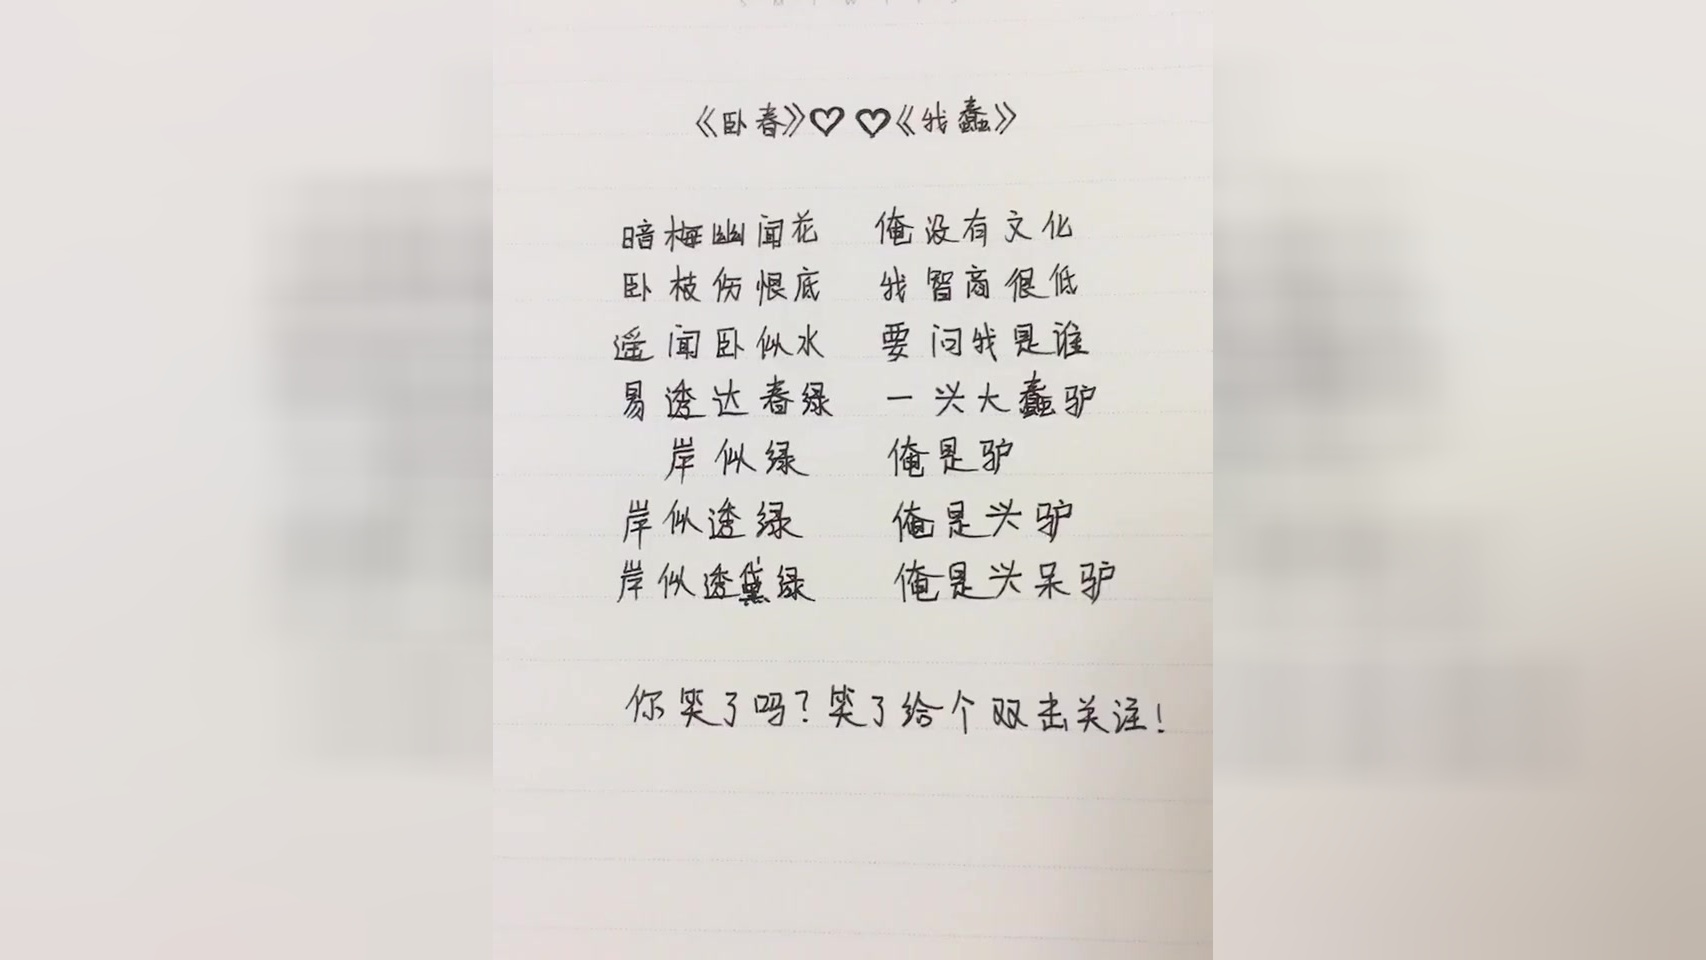 《卧春》♡ ♡《我蠢》
暗梅幽闻花 俺没有文化
卧枝伤恨底 我智商很低
遥闻卧似水 要问我是谁
易透达春绿 一头大蠢驴
岸似绿 俺是驴
岸似透绿 俺是头驴
岸似透黛绿 俺是头呆驴
你笑了吗?笑了给个双击关注!